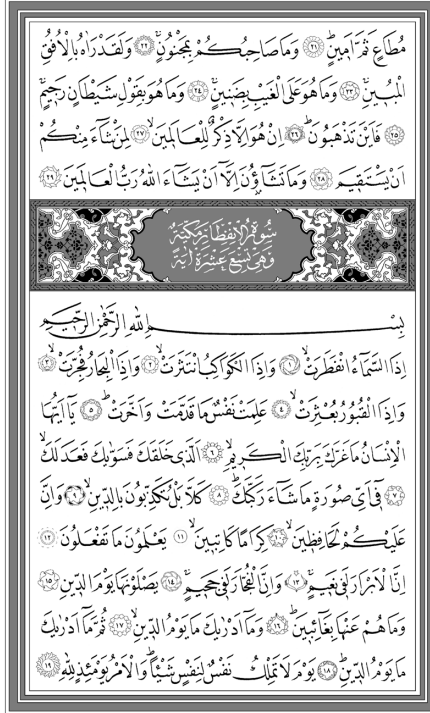 مُطَاعٍ ثَمَّ اَمٖينٍۜ ﴿٢١﴾ وَمَا صَاحِبُكُمْ بِمَجْنُونٍۚ ﴿٢٢﴾ وَلَقَدْ رَاٰهُ بِالْاُفُقِ
الْمُبٖينِۚ ﴿٢٣﴾ وَمَا هُوَ عَلَى الْغَيْبِ بِضَنٖينٍۚ ﴿٢٤﴾ وَمَا هُوَ بِقَوْلِ شَيْطَانٍ رَجٖيمٍۙ
﴿٢٥﴾ فَاَيْنَ تَذْهَبُونَۜ ﴿٢٦﴾ اِنْ هُوَ اِلَّا ذِكْرٌ لِلْعَالَمٖينَۙ ﴿٢٧﴾ لِمَنْ شَٓاءَ مِنْكُمْ
اَنْ يَسْتَقٖيمَۜ ﴿٢٨﴾ وَمَا تَشَٓاؤُ۫نَ اِلَّٓا اَنْ يَشَٓاءَ اللّٰهُ رَبُّ الْعَالَمٖينَ ﴿٢٩﴾
سُورَةُ الْاِنْفِطَارِ مَكِّيَّةٌ
وَهِيَ تِسْعَ عَشْرَةَ اٰيَةً
بِسْمِ اللّٰهِ الرَّحْمٰنِ الرَّحٖيمِ
اِذَا السَّمَٓاءُ انْفَطَرَتْۙ ﴿١﴾ وَاِذَا الْكَوَاكِبُ انْتَثَرَتْۙ ﴿٢﴾ وَاِذَا الْبِحَارُ فُجِّرَتْۙ ﴿٣﴾
وَاِذَا الْقُبُورُ بُعْثِرَتْۙ ﴿٤﴾ عَلِمَتْ نَفْسٌ مَا قَدَّمَتْ وَاَخَّرَتْۜ ﴿٥﴾ يَٓا اَيُّهَا
الْاِنْسَانُ مَا غَرَّكَ بِرَبِّكَ الْكَرٖيمِۙ ﴿٦﴾ اَلَّذٖي خَلَقَكَ فَسَوّٰيكَ فَعَدَلَكَۙ
﴿٧﴾ فٖٓي اَيِّ صُورَةٍ مَا شَٓاءَ رَكَّبَكَۜ ﴿٨﴾ كَلَّا بَلْ تُكَذِّبُونَ بِالدّٖينِۙ ﴿٩﴾ وَاِنَّ
عَلَيْكُمْ لَحَافِظٖينَۙ ﴿١٠﴾ كِرَامًا كَاتِبٖينَۙ ﴿١١﴾ يَعْلَمُونَ مَا تَفْعَلُونَ ﴿١٢﴾
اِنَّ الْاَبْرَارَ لَفٖي نَعٖيمٍۚ ﴿١٣﴾ وَاِنَّ الْفُجَّارَ لَفٖي جَحٖيمٍۚ ﴿١٤﴾ يَصْلَوْنَهَا يَوْمَ الدّٖينِ ﴿١٥﴾
وَمَا هُمْ عَنْهَا بِغَٓائِبٖينَۜ ﴿١٦﴾ وَمَٓا اَدْرٰيكَ مَا يَوْمُ الدّٖينِۙ ﴿١٧﴾ ثُمَّ مَٓا اَدْرٰيكَ
مَا يَوْمُ الدّٖينِۜ ﴿١٨﴾ يَوْمَ لَا تَمْلِكُ نَفْسٌ لِنَفْسٍ شَيْـًٔاۜ وَالْاَمْرُ يَوْمَئِذٍ لِلّٰهِ ﴿١٩﴾